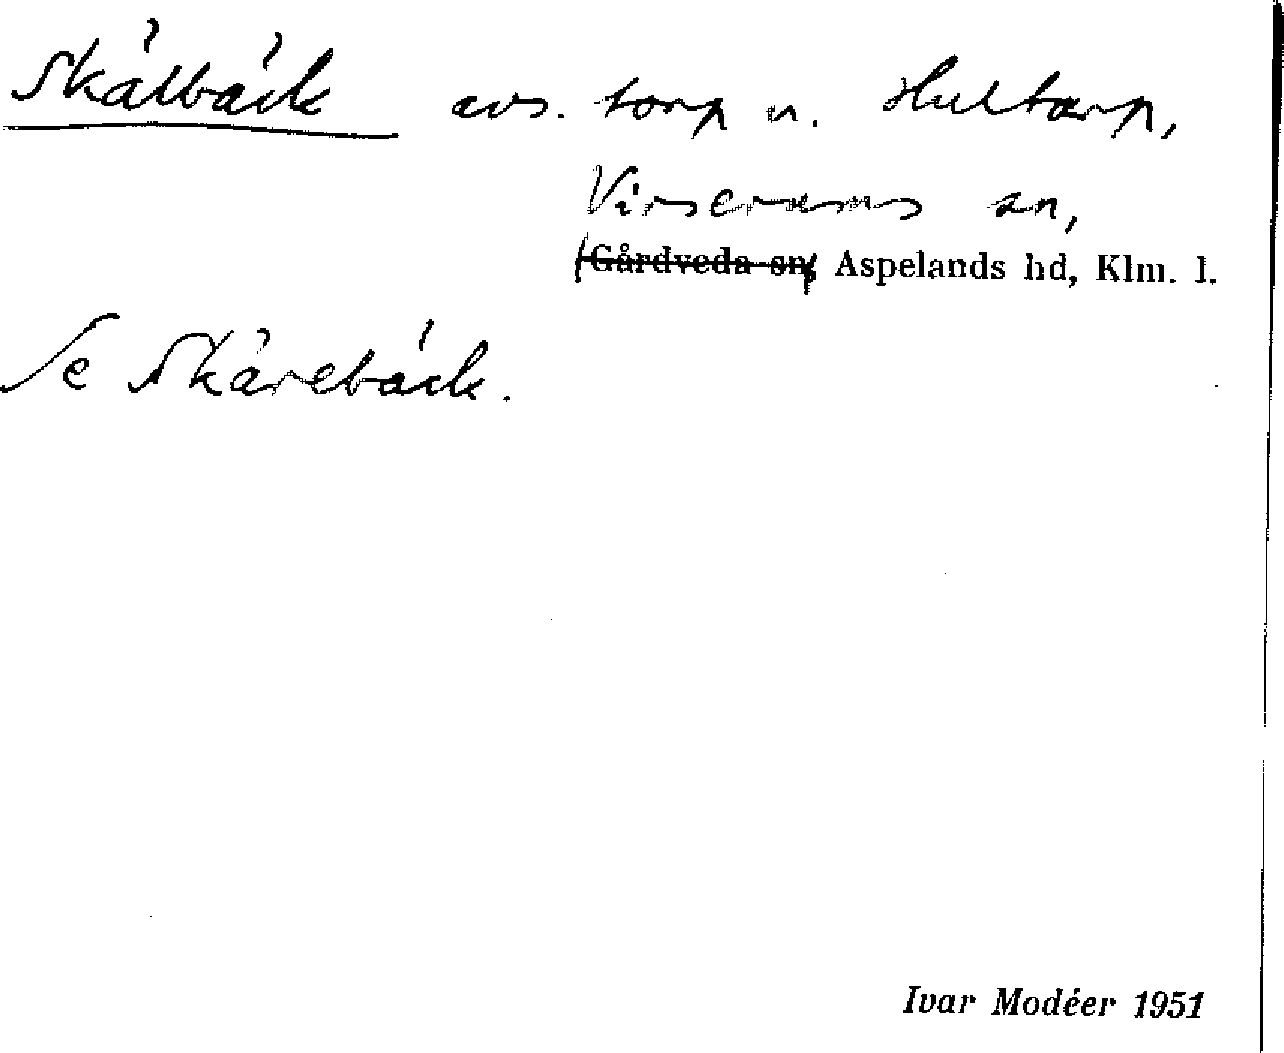 Skálbáck avs. torp u. Hultarp,
Virserums sn,
(Gårdveda sn, Aspelands hd, Klm. l.
Se Skårebäck.
Ivar Modéer 1951